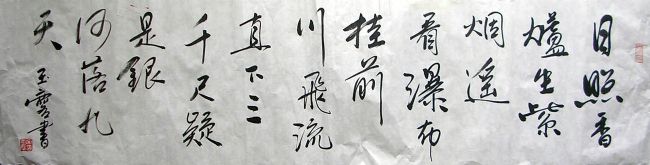 日照香
爐生紫
烟遥
看瀑布
挂前
川飛流
直下三
千尺疑
是銀
河落九
天
玉 書